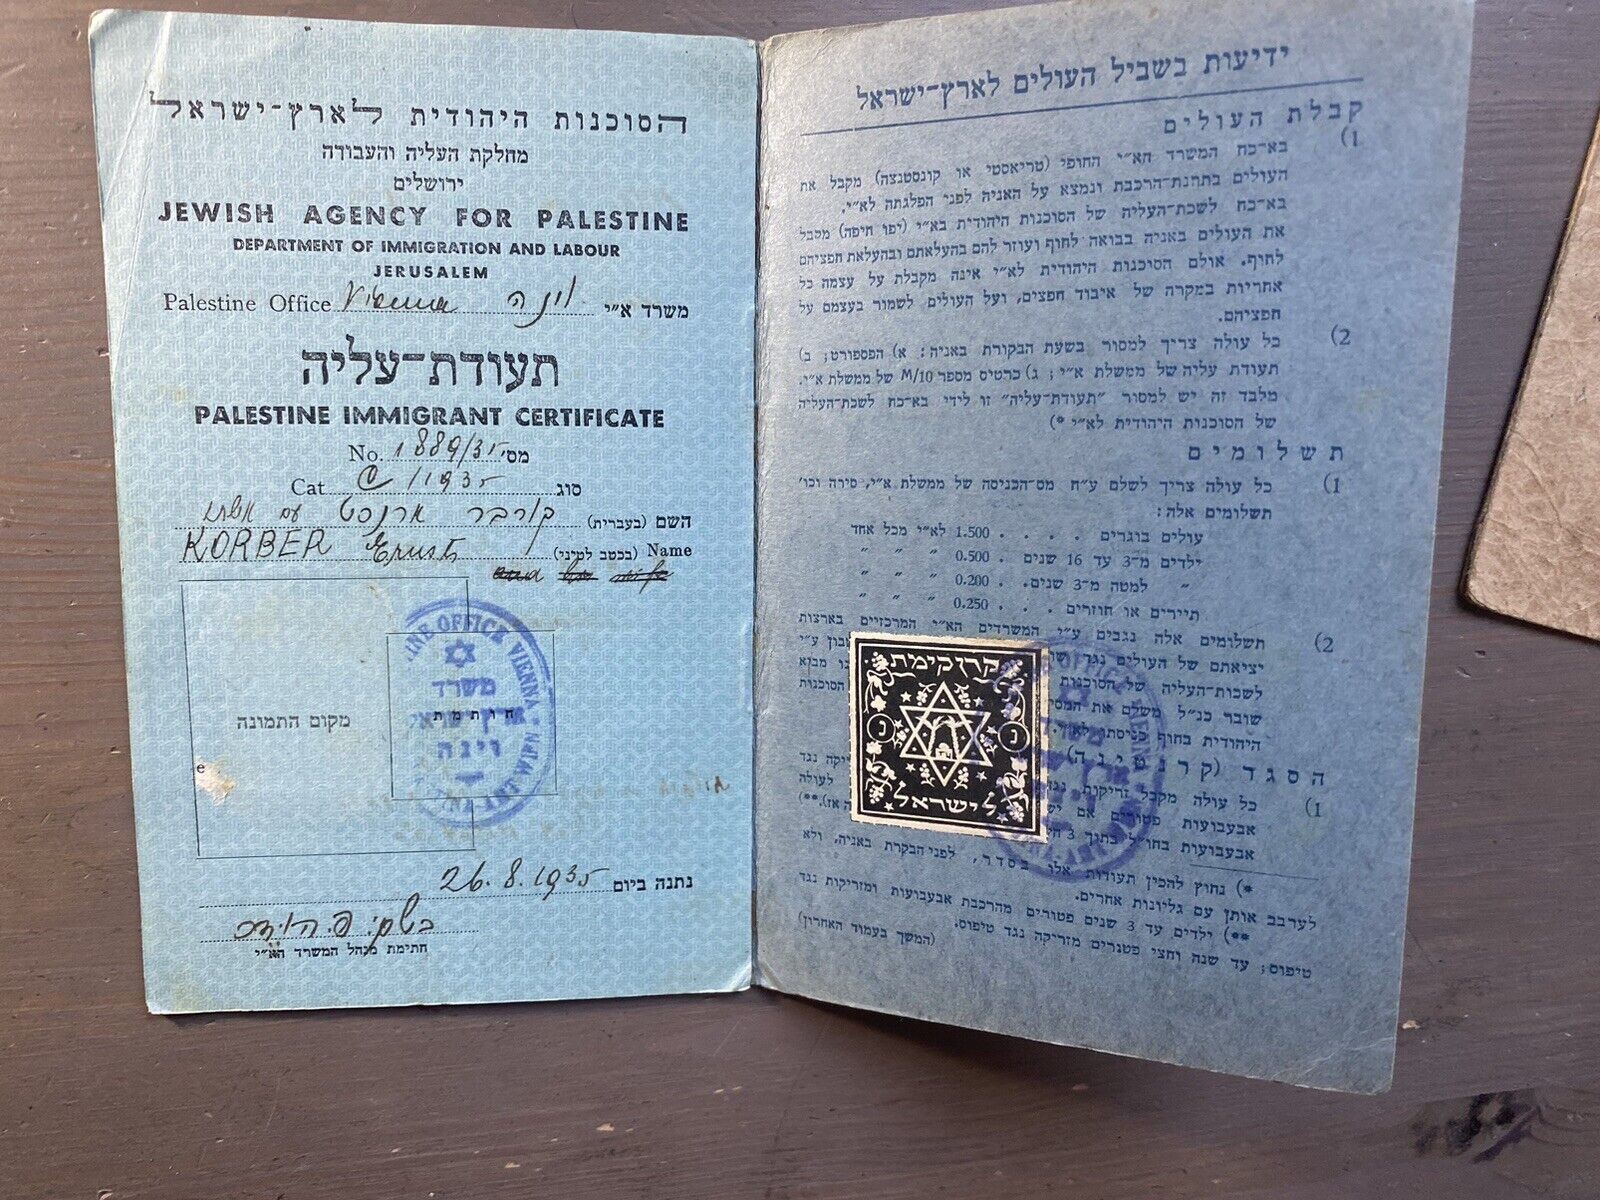 הסוכנות היהודית לארץ-ישראל
מחלקת העליה והעבודה
ירושלים
JEWISH AGENCY FOR PALESTINE
DEPARTMENT OF IMMIGRATION AND LABOUR
JERUSALEM
Palestine Office Vienna וינה משרד א״י
תעודת-עליה
PALESTINE IMMIGRANT CERTIFICATE
No. 1889/35 מס׳
Cat C/1935 סוג
השם (בעברית) קורבר ארנסט עם
KORBER Ernst (בכטב לטיני) Name
מקום התמונה
חותמת
PALESTINE OFFICE VIENNA
משרד
ארץ-ישראלי
וינה
e
נתנה ביום 26.8.1935
בשם:
חתימת מנהל המשרד הא״י
ידיעות בשביל העולים לארץ-ישראל
קבלת העולים
1) בא-כח המשרד הא״י החופי (טריאסטי או קונסטנצה) מקבל את
העולים בתחנת-הרכבת ונמצא על האניה לפני הפלגתה לא״י.
בא-כח לשכת-העליה של הסוכנות היהודית בא״י (יפו חיפה) מקבל
את העולים באניה בבואה לחוף ועוזר להם בהעלאתם ובהעלאת חפציהם
לחוף. אולם הסוכנות היהודית לא״י אינה מקבלת על עצמה כל
אחריות במקרה של איבוד חפצים, ועל העולים לשמור בעצמם על
חפציהם.
2) כל עולה צריך למסור בשעת הבקורת באניה: א) הפספורט; ב)
תעודת עליה של ממשלת א״י; ג) כרטיס מספר M/10 של ממשלת א״י.
מלבד זה יש למסור ״תעודת-עליה״ זו לידי בא-כח לשכת-העליה
של הסוכנות היהודית לא״י *)
תשלומים
1) כל עולה צריך לשלם ע״ח מס-הכניסה של ממשלת א״י, סירה וכו׳
תשלומים אלה:
עולים בוגרים . . . . 1.500 לא״י מכל אחד
ילדים מ-3 עד 16 שנים . 0.500 ״ ״ ״
״ למטה מ-3 שנים. . 0.200 ״ ״ ״
תיירים או חוזרים . . . 0.250 ״ ״ ״
2) תשלומים אלה נגבים ע״י המשרדים הא״י המרכזיים בארצות
יציאתם של העולים נגד
לשכות-העליה של הסוכנות
שובר כנ״ל משלם את
היהודית בחוף
קרן קימת
לישראל
הסגר (קרנטינה)
1) כל עולה מקבל זריקות
אבעבועות פטורים אם
אבעבועות בחו״ל בתוך 3
*) נחוץ להכין תעודות אלו בסדר, לפני הבקרת באניה, ולא
לערבב אותן עם גליונות אחרים.
**) ילדים עד 3 שנים פטורים מהרכבת אבעבועות ומזריקות נגד
טיפוס; עד שנה וחצי פטורים מזריקה נגד טיפוס. (המשך בעמוד האחרון)